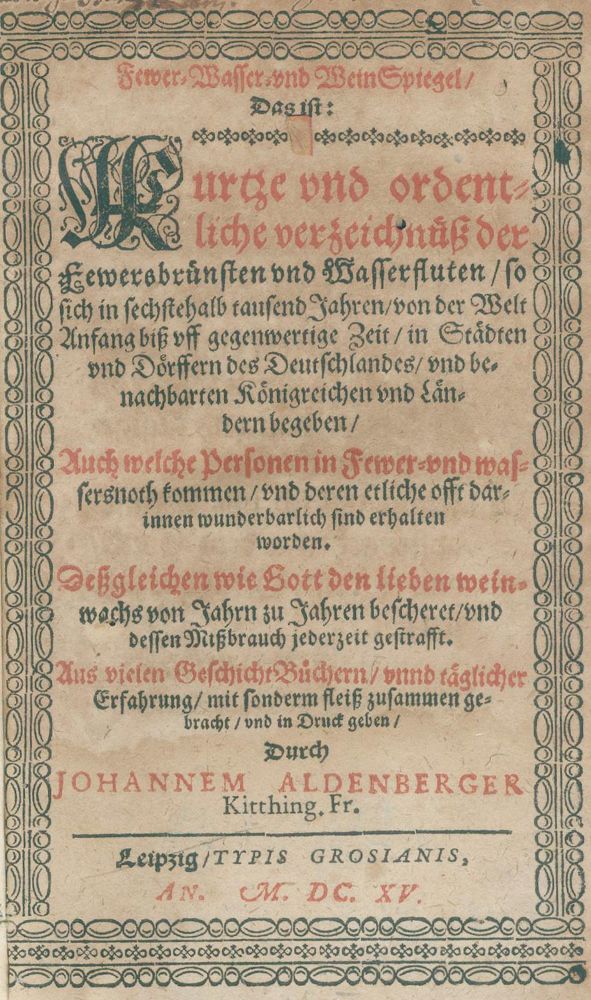 Fewer-Wasser-vnd WeinSpiegel/
Das ist:
Kurtze vnd ordent-
liche verzeichnüß der
Fewersbrünsten vnd Wasserfluten/ so
sich in sechstehalb tausend Jahren/ von der Welt
Anfang biß vff gegenwertige Zeit/ in Städten
vnd Dörffern des Deutschlandes/ vnd be-
nachbarten Königreichen vnd Län-
dern begeben/
Auch welche Personen in Fewer-vnd was-
sersnoth kommen/ vnd deren etliche offt dar-
innen wunderbarlich sind erhalten
worden.
Deßgleichen wie Gott den lieben wein-
wachs von Jahrn zu Jahren bescheret/ vnd
dessen Mißbrauch jederzeit gestrafft.
Aus vielen Geschicht-Büchern/ vnnd täglicher
Erfahrung/ mit sonderm fleiß zusammen ge-
bracht/ vnd in Druck geben/
Durch
JOHANNEM ALDENBERGER
Kitthing. Fr.
Leipzig/ TYPIS GROSIANIS,
AN. M. DC. XV.